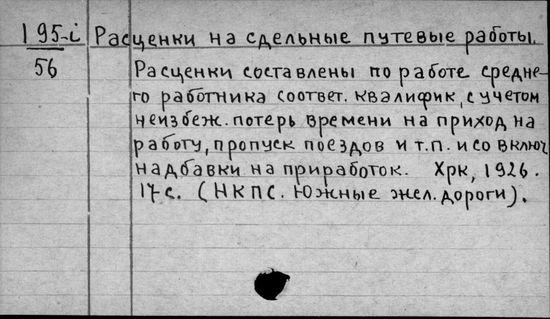 195-i Расценки на сдельные путевые работы.
56 Расценки составлены по работе средне-
го работника соответ. квалифик, с учетом
неизбеж. потерь времени на приход на
работу, пропуск поездов и т.п. и со включ
надбавки на приработок. Хрк, 1926.
17с. (НКПС. Южные жел. дороги).